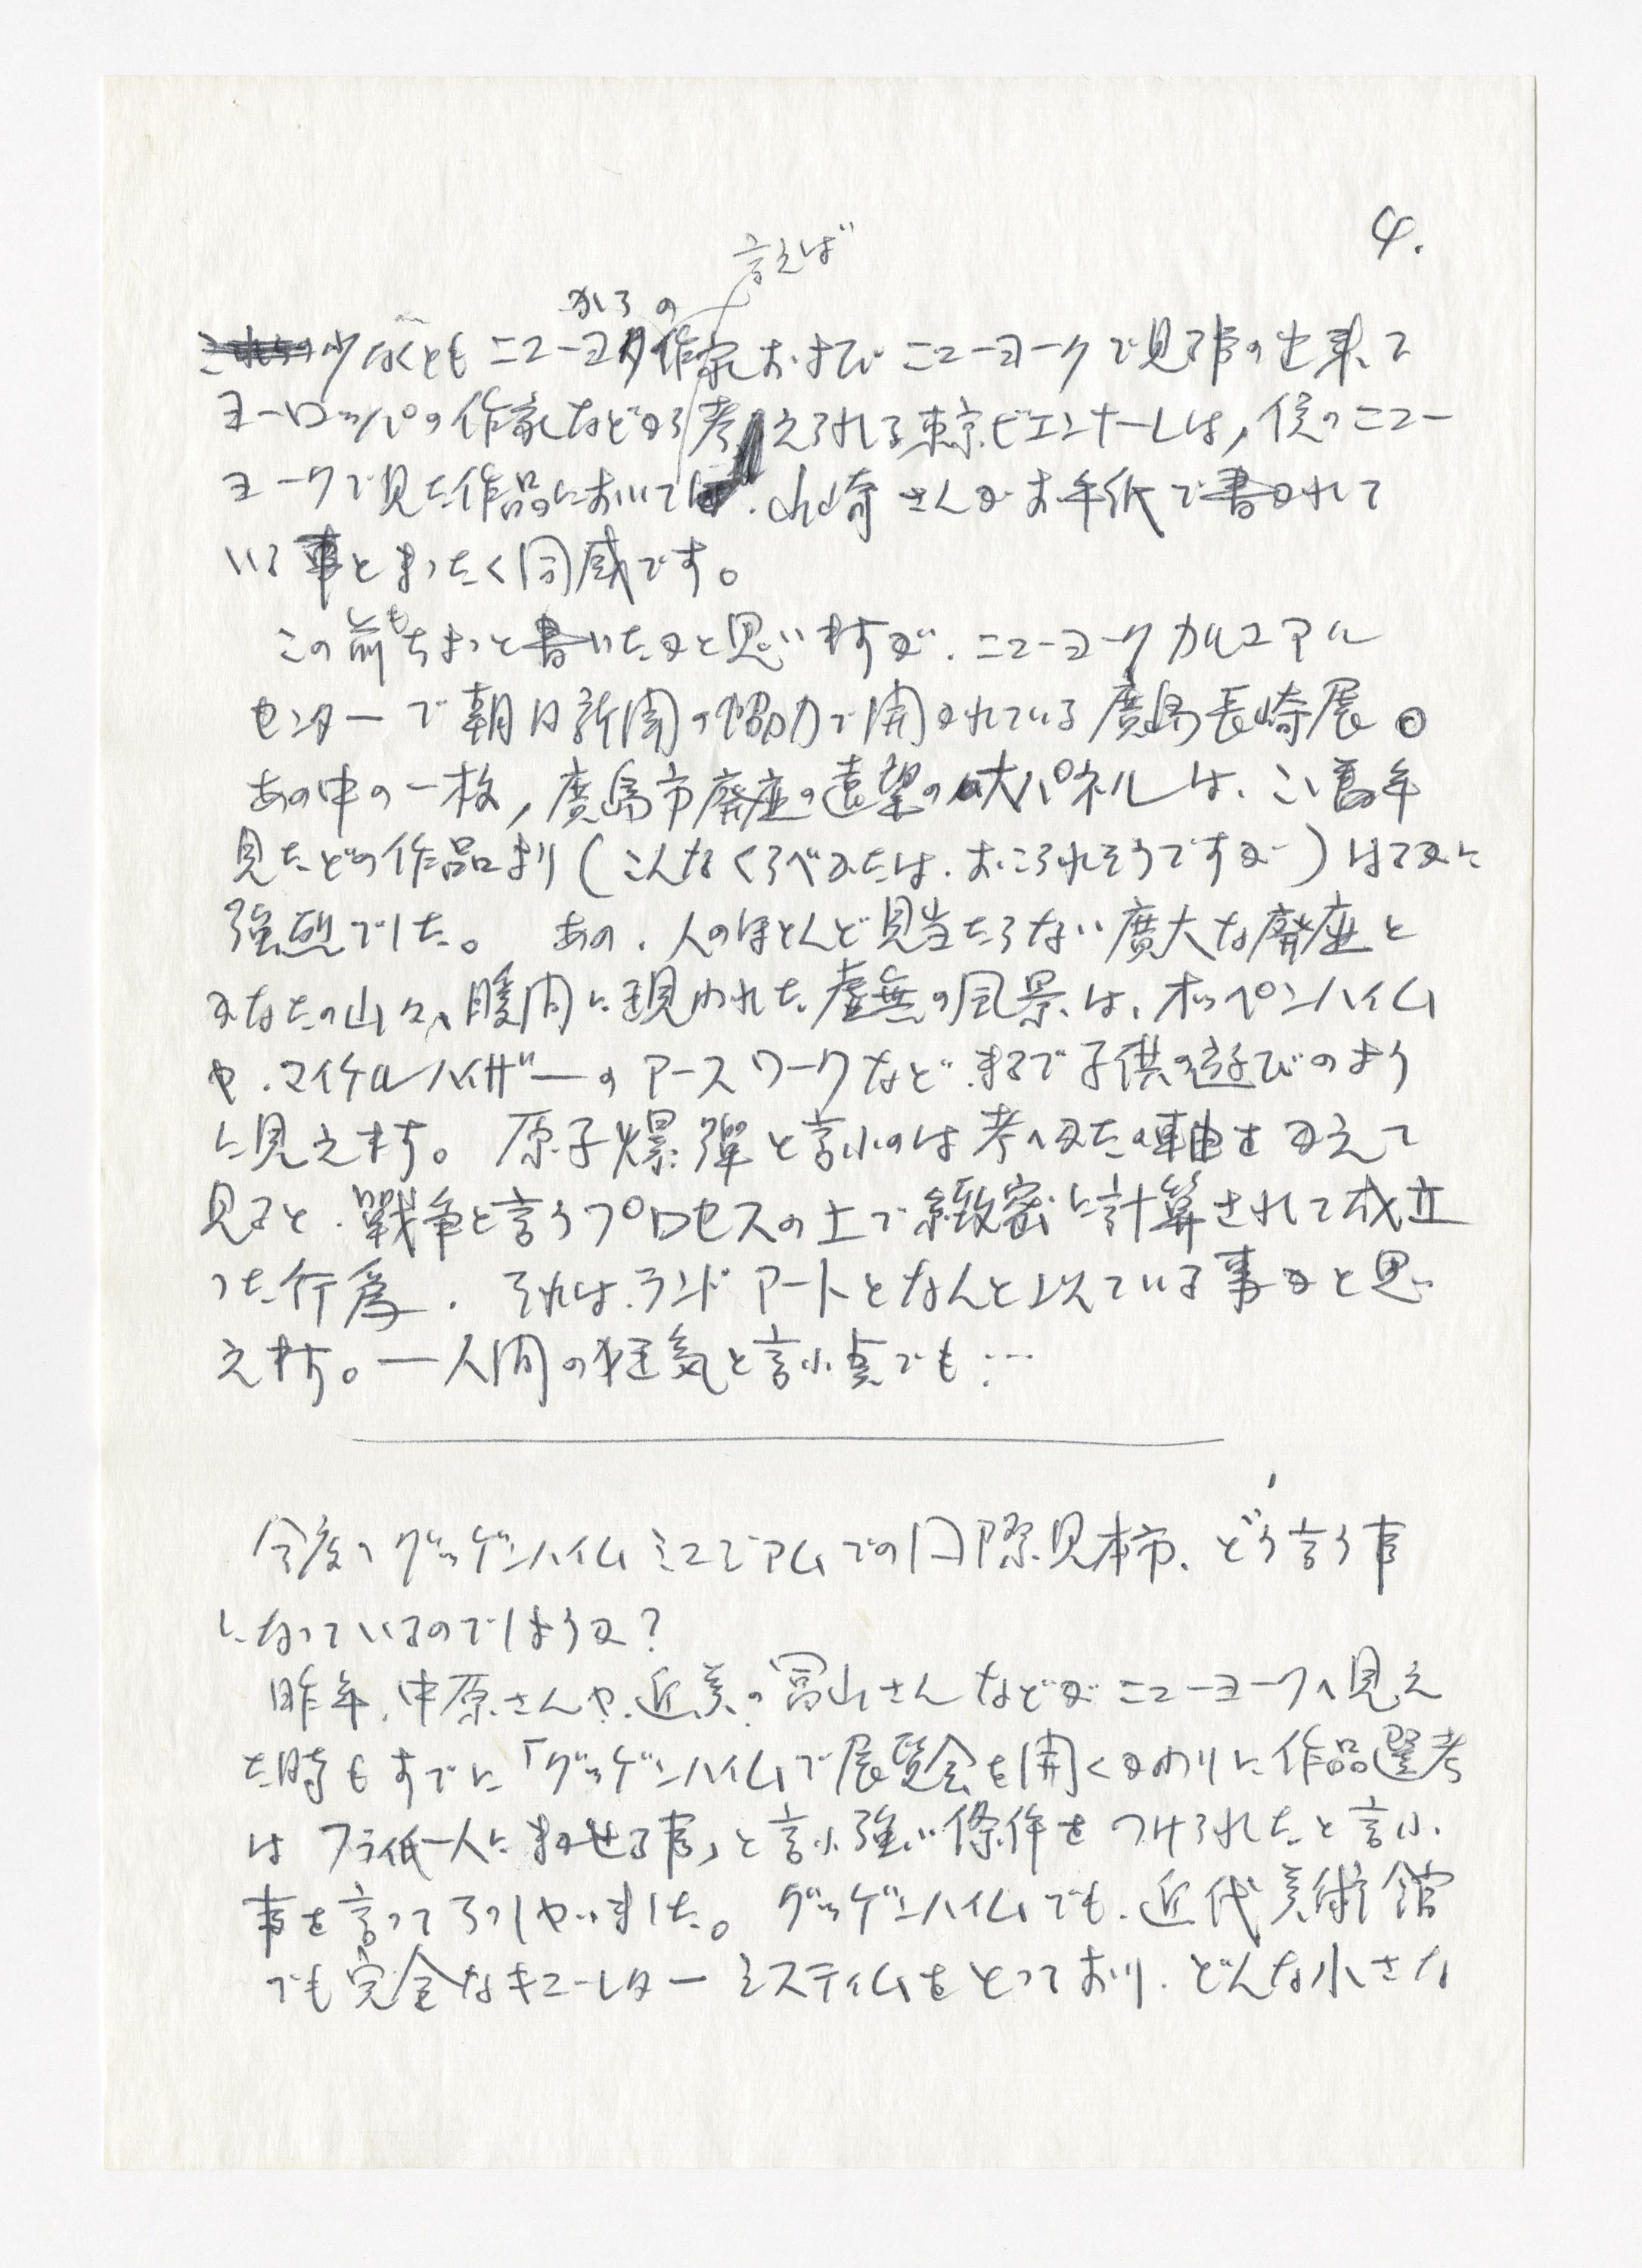 4.
言えば
からの
少なくとも ニューヨーク作家およびニューヨークで見る事の出来て
ヨーロッパの作家などから考えられる東京ビエンナーレは、僕のニュー
ヨークで見た作品において、山崎さんがお手紙で書かれて
いる事とまったく同感です。
この前もちょっと書いたかと思いますが、ニューヨークカルコアル
センターで朝日新聞の協力で開かれている廣島長崎展。
あの中の一枚、廣島市廃墟の遠望の大パネルは、ここ数年
見たどの作品より(こんなくらべかたは、おこられそうですが)はるかに
強烈でした。 あの、人のほとんど見当たらない廣大な廃墟と
かなたの山々、瞬間に現われた虚無の風景は、オッペンハイム
や、マイケルハイザーのアースワークなど、まるで子供の遊びのよう
に見えます。 原子爆弾と言ふのは考へかたの軸をかえて
見ると、戰争と言うプロセスの上で緻密に計算されて成立
った行為、 それは、ランドアートとなんと似ている事かと思い
えます。—人間の狂気と言ふ点でも…
今度のグッゲンハイムミュージアムでの国際見本市、どう言う事
になっているのでしょうか?
昨年、中原さんや、近美の富山さんなどがニューヨークへ見え
た時もすでに「グッゲンハイムで展覧会を開くかわりに作品選考
は フライ氏一人にまかせる事」と言ふ強い條件をつけられたと言ふ
事を言ってらっしやいました。 グッゲンハイムでも、近代美術館
でも完全なキューレターシスティムをとっており、どんな小さな